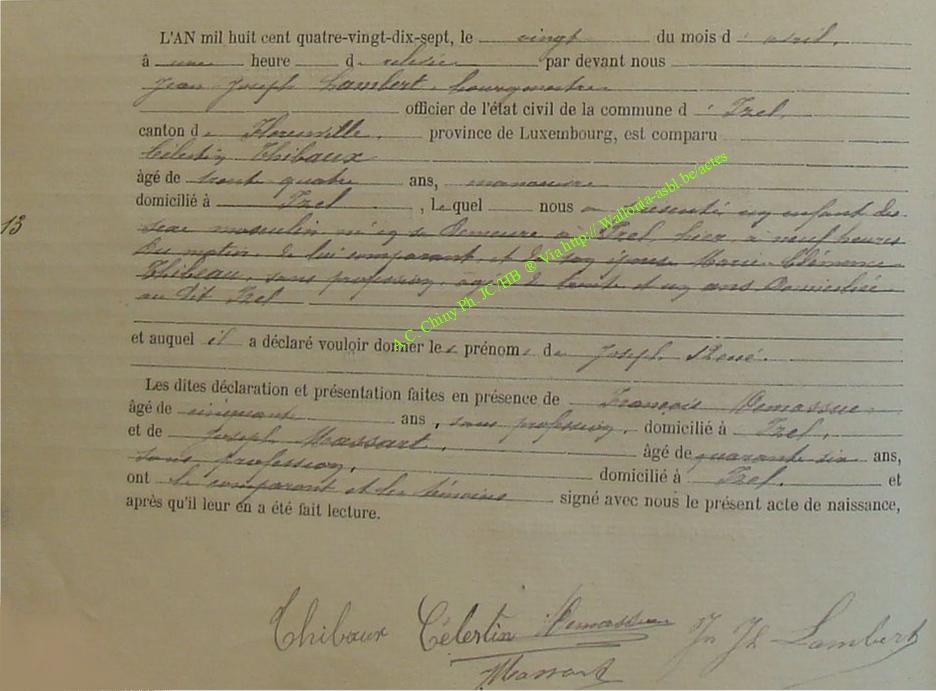 L'AN mil huit cent quatre-vingt-dix-sept, le vingt du mois d'avril,
à une heure d relevée par devant nous
Jean Joseph Lambert, bourgmestre
officier de l'état civil de la commune d'Izel,
canton de Florenville, province de Luxembourg, est comparu
Célestin Thibaux
âgé de trente quatre ans, manoeuvre
domicilié à Izel, lequel nous a présenté un enfant du
13
sexe masculin né en sa demeure à Izel, hier, à neuf heures
du matin, de lui comparant, et de son épouse Marie Clémence
Thibeau, sans profession, âgée de trente et un ans domiciliée
au dit Izel
et auquel il a déclaré vouloir donner les prénoms de Joseph René.
Les dites déclaration et présentation faites en présence de François Demassue
âgé de cinquante ans, sans profession, domicilié à Izel,
et de Joseph Massart, âgé de quarante six ans,
sans profession, domicilié à Izel, et
ont le comparant et les témoins signé avec nous le présent acte de naissance,
après qu'il leur en a été fait lecture.
Thibaux Célestin Demassue Jn Jh Lambert
Massart
A.C. Chiny Ph. JC/HB @ Via http:// Wallonia-asbl.be/actes